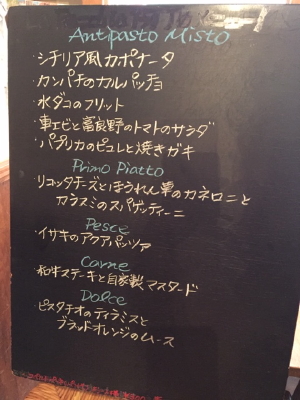 Antipasto Misto
・シチリア風カポナータ
・カンパチのカルパッチョ
・水ダコのフリット
・車エビと富良野のトマトのサラダ
・パプリカのピュレと焼きガキ
Primo Piatto
・リコッタチーズとほうれん草のカネロニと
カラスミのスパゲッティーニ
Pesce
・イサキのアクアパッツァ
Carne
・和牛ステーキと自家製マスタード
Dolce
・ピスタチオのティラミスと
ブラッドオレンジのムース